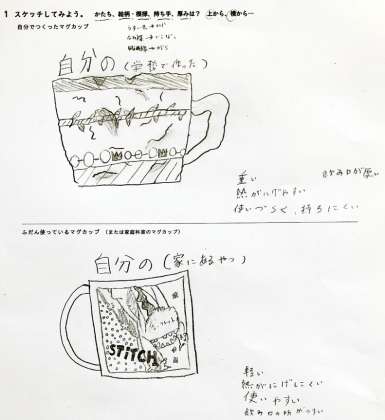 1 スケッチしてみよう。 かたち、絵柄・模様、持ち手、厚みは？ 上から、横から…
自分でつくったマグカップ
自分の（学校で作った）
重い
飲み口が厚い
熱がにげやすい
使いづらく、持ちにくい
ふだん使っているマグカップ （または家庭科室のマグカップ）
自分の（家にあるやつ）
STiTCH
軽い
熱がにげにくい
使いやすい